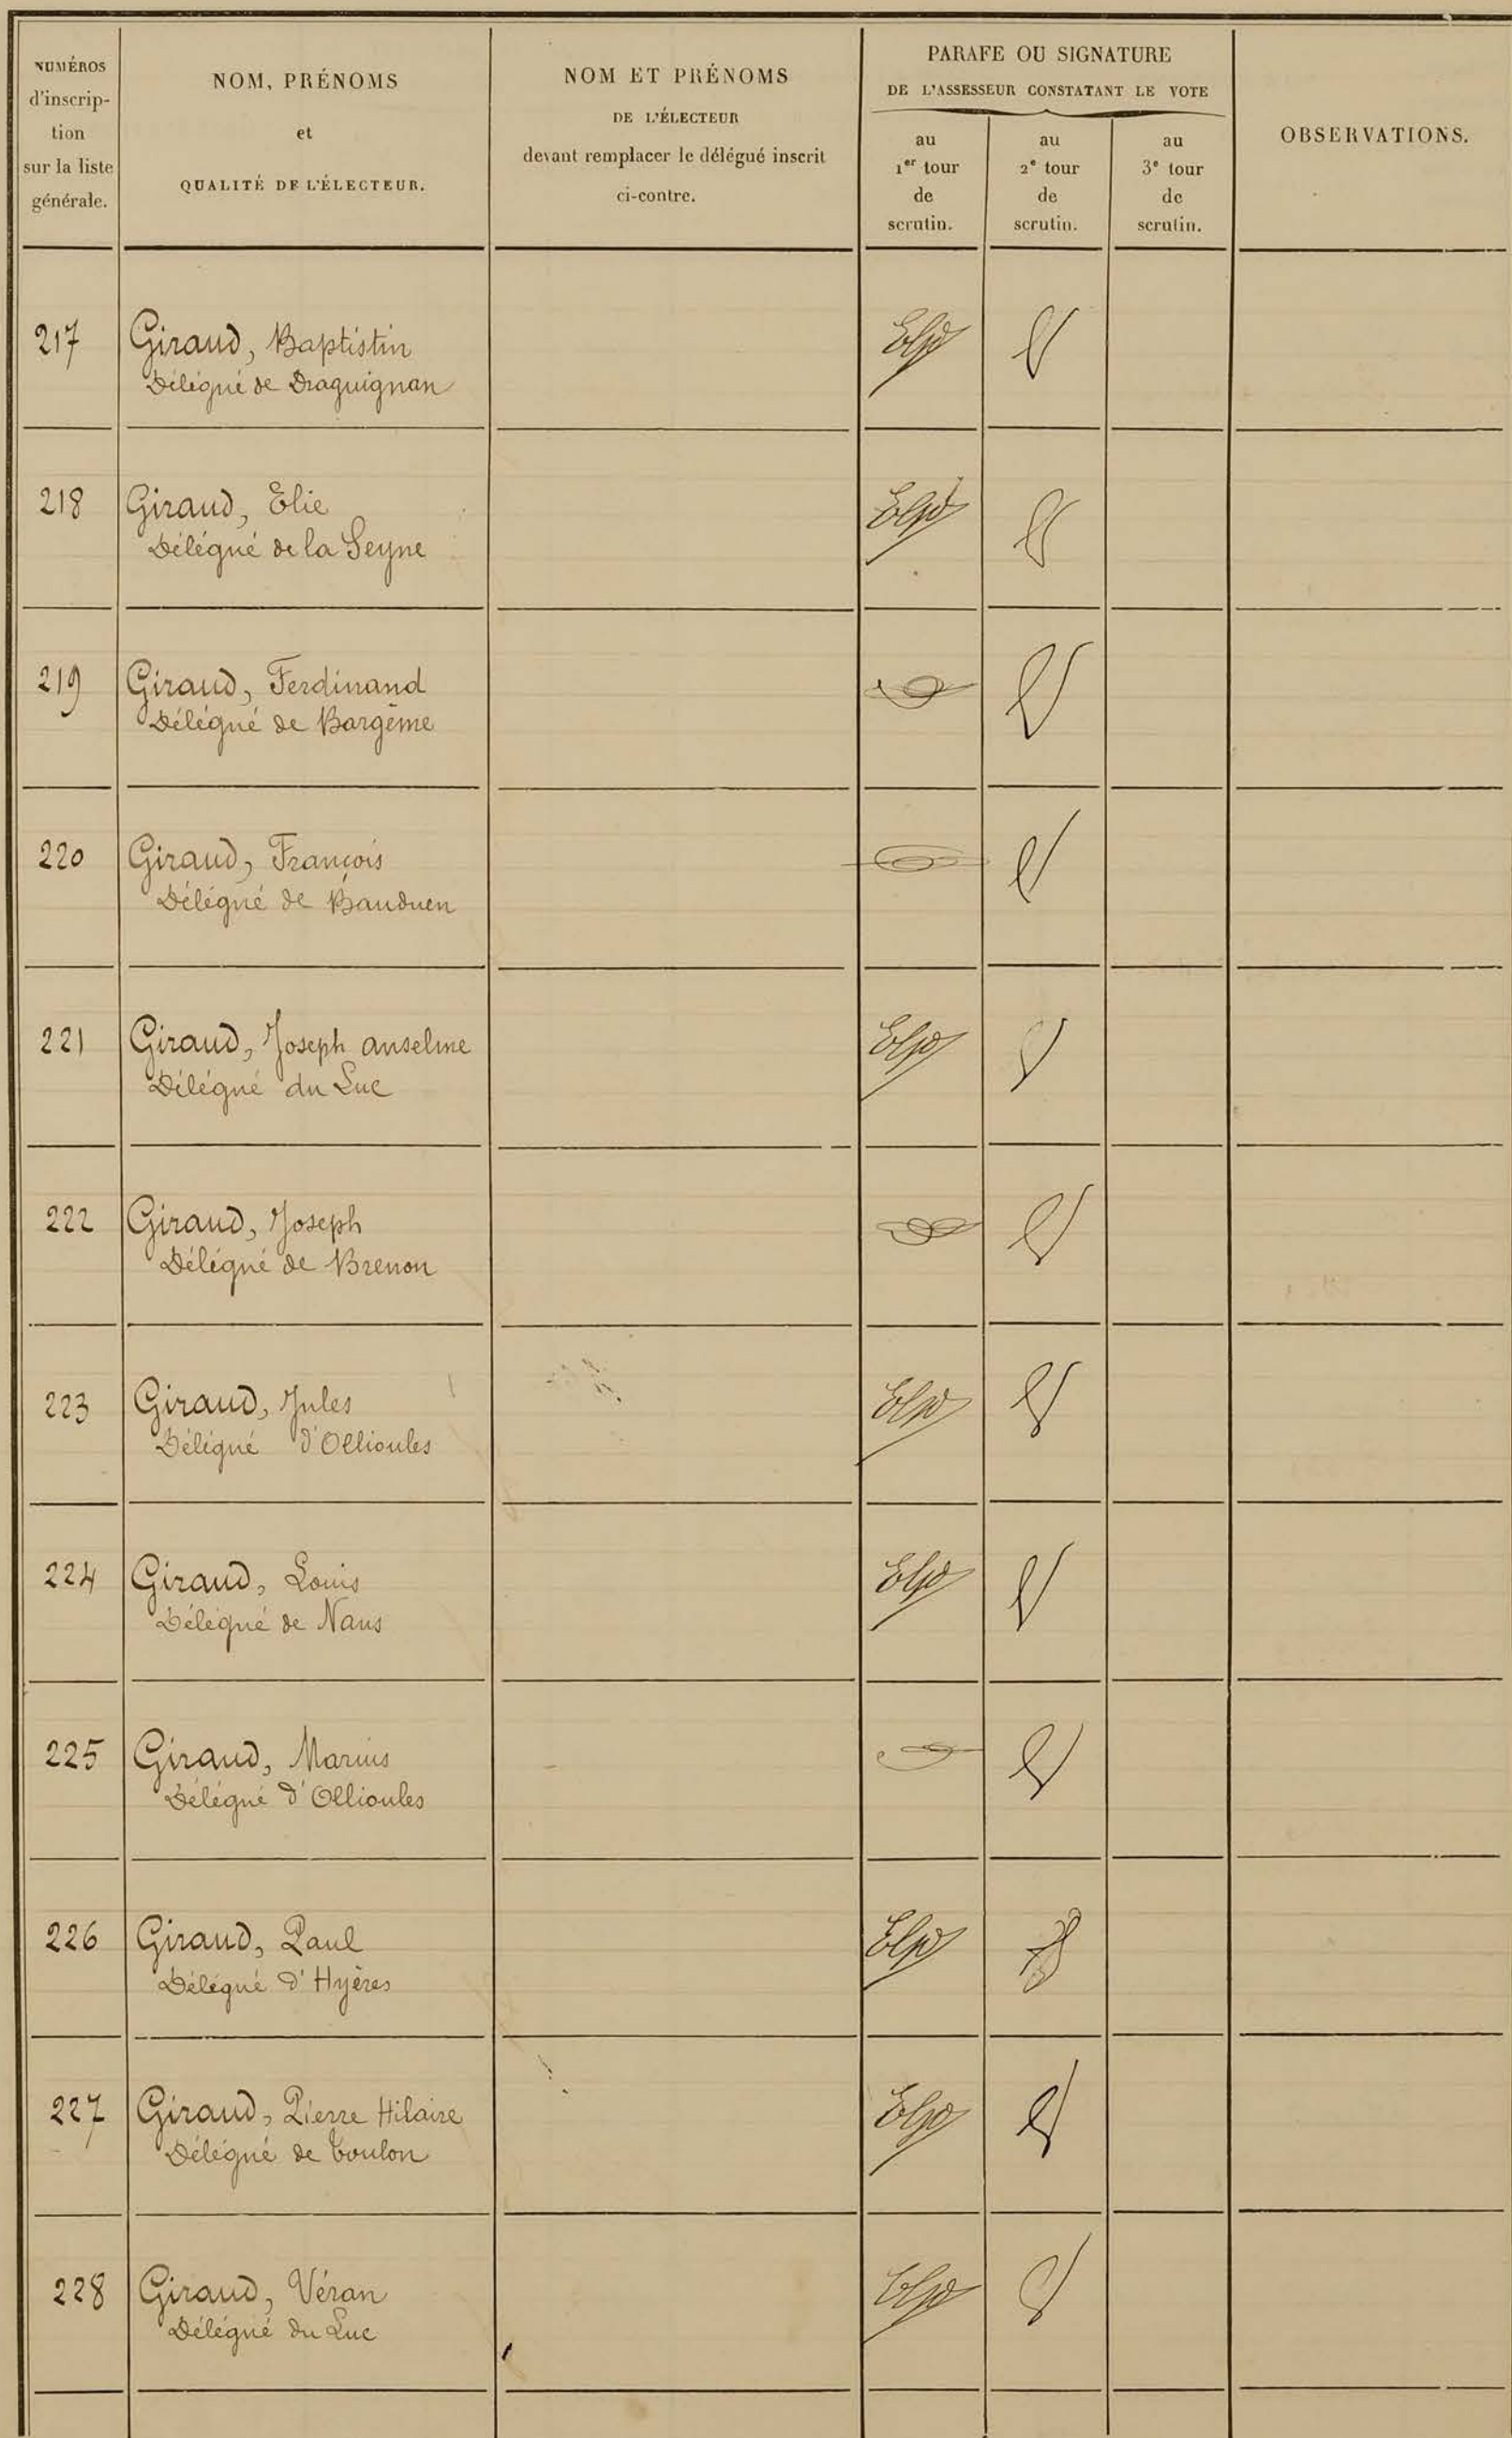 NUMÉROS
d'inscrip-
tion
sur la liste
générale.
NOM, PRÉNOMS
et
QUALITÉ DE L'ÉLECTEUR.
NOM ET PRÉNOMS
DE L'ÉLECTEUR
devant remplacer le délégué inscrit
ci-contre.
PARAFE OU SIGNATURE
DE L'ASSESSEUR CONSTATANT LE VOTE
au
1er tour
de
scrutin.
au
2e tour
de
scrutin.
au
3e tour
de
scrutin.
OBSERVATIONS.
217 Giraud, Baptistin
Délégué de Draguignan
218 Giraud, Elie
Délégué de la Seyne
219 Giraud, Ferdinand
Délégué de Bargême
220 Giraud, François
Délégué de Bauduen
221 Giraud, Joseph anselme
Délégué du Luc
222 Giraud, Joseph
Délégué de Brenon
223 Giraud, Jules
Délégué d'Ollioules
224 Giraud, Louis
Délégué de Nans
225 Giraud, Marius
Délégué d'Ollioules
226 Giraud, Paul
Délégué d'Hyères
227 Giraud, Pierre Hilaire
Délégué de Toulon
228 Giraud, Véran
Délégué du Luc